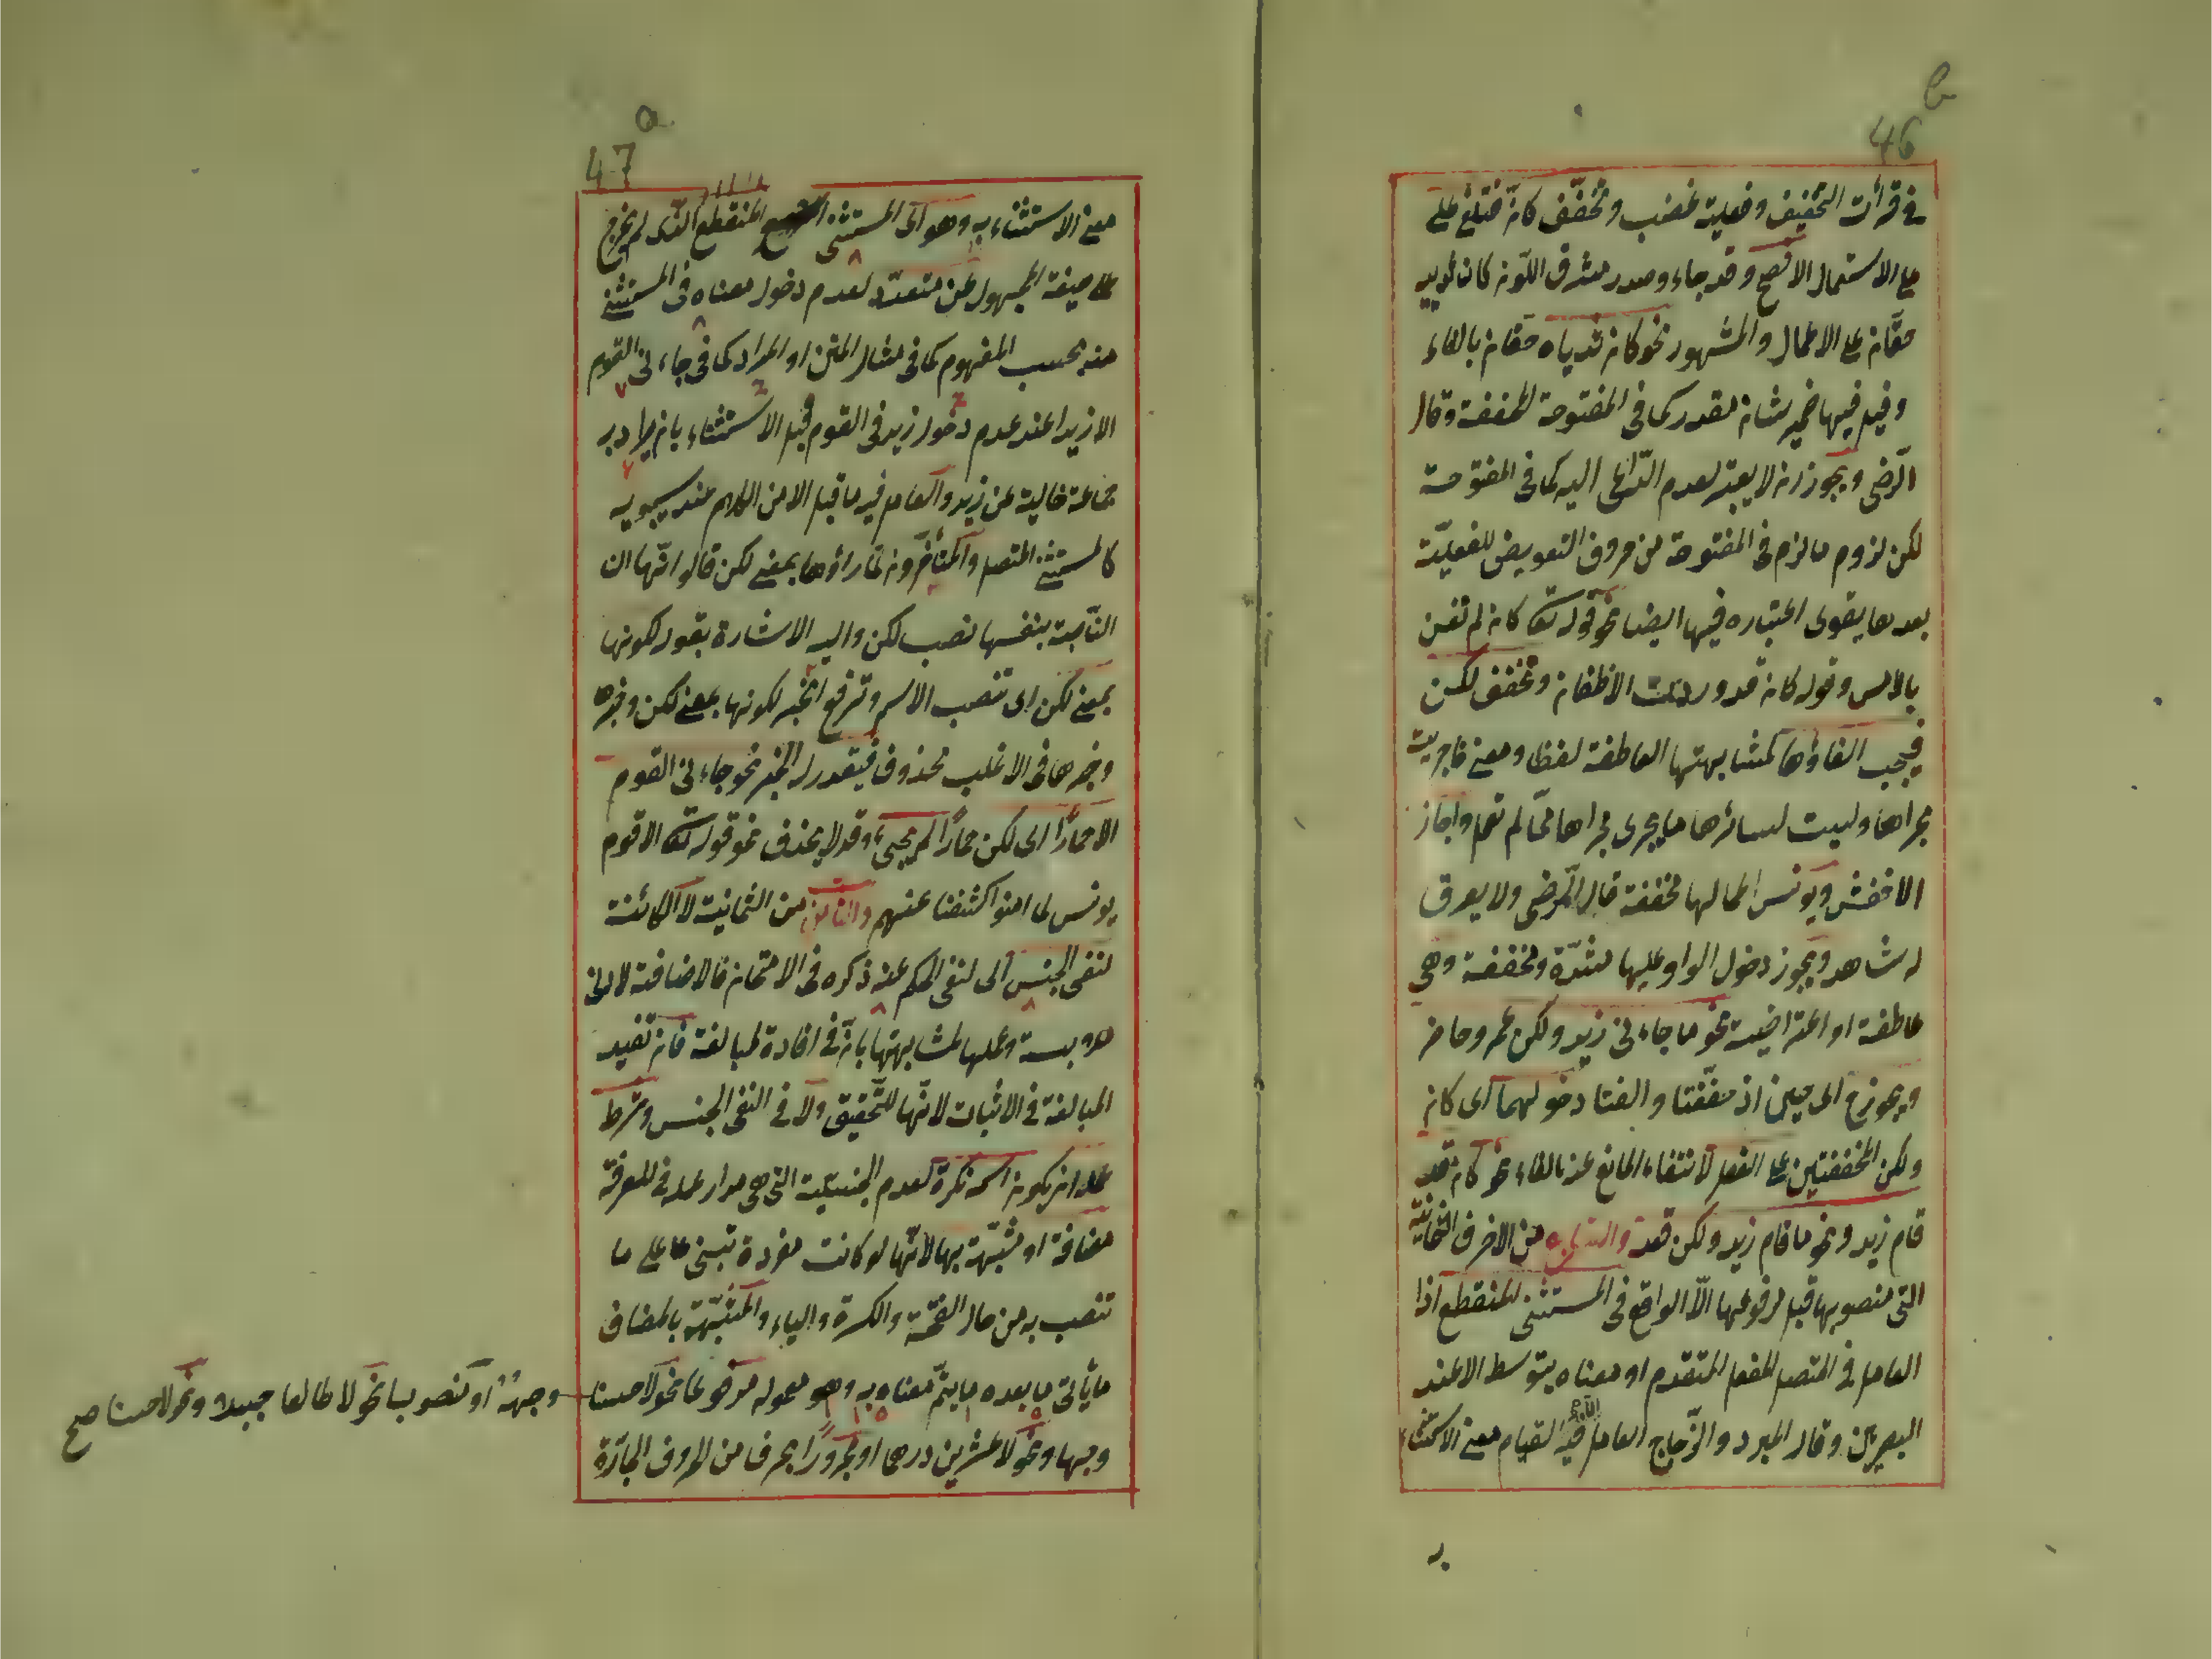 b
46
في قرأت التخفيف وفعلية غضب وتخفف كأن فتلغى على
على الاستعمال الافصح وقد جاء وصدر مشرق اللون كان ثدييه
حقان على الاعمال والمشهور نحو كان ثدياه حقان بالالغاء
وقيل فيها ضمير شان مقدر كما في المفتوحة المخففة وقال
الرضى ويجوز ان لا يعتبر لعدم الداعى اليه كما في المفتوحة
لكن لزوم ما لزم في المفتوحة من حروف التعويض للفعلية
بعدها يقوى اعتباره فيها ايضا نحو قوله تعالى كان لم تغن
بالامس وقوله كان قد وردت الاظعان وتخفف لكن
فيجب الغاؤها لمشابهتها العاطفة لفظا ومعنى فاجريت
مجراها وليست لسائرها ما يجرى مجراها مما لم تعمل واجاز
الاخفش ويونس اعمالها مخففة قال الرضى ولا يعرف
له شاهد ويجوز دخول الواو عليها مشددة ومخففة وهي
عاطفة او اعتراضية نحو ما جاءني زيد ولكن عمرو حاضر
ويجوز ح اى حين اذ خففتا والغتا دخولهما اى كان
ولكن المخففتين على الفعل لانتفاء المانع عنه بالالغاء نحو كان قد
قام زيد ونحو ما قام زيد ولكن قعد والسابع من الاحرف الثمانية
التى منصوبها قبل مرفوعها الّا الواقع فى المستثنى المنقطع اذا
العامل في المتصل الفعل المتقدم او معناه بتوسط الا عند
البصريين وقال المبرد والزجاج العامل فيه القيام معنى الاستثناء
47
a
معنى الاستثناء به وهو اى المستثنى المنقطع الذى لم يخرج
على صيغة المجهول عن متعدد لعدم دخول معناه فى المستثنى
منه بحسب المفهوم كما فى مثال المتن او المراد كما في جاءني القوم
الا زيدا عند عدم دخول زيد في القوم قبل الاستثناء بان يراد به
جماعة خالية عن زيد والعامل فيه ما قبل الا من الكلام عند سيبويه
كالمستثنى المتصل والمتأخرون لما رأوها بمعنى لكن قالوا انها ان
الناصبة بنفسها نصب لكن واليه الاشارة بقوله لكونها
بمعنى لكن اى تنصب الاسم وترفع الخبر لكونها بمعنى لكن وخبرها
وخبرها فى الاغلب محذوف فيقدر له الخبر نحو جاءني القوم
الا حمارًا اى لكن حمارًا لم يجئ وقد لا يحذف نحو قوله تعالى الا قوم
يونس لما امنوا كشفنا عنهم والثامن من الثمانية لا الكائنة
لنفي الجنس اى لنفى الحكم عنه ذكره فى الامتحان فالاضافة لادنى
ملابسة وعملها لمشابهتها بانّ في افادة المبالغة فان تفيد
المبالغة في الاثبات لانها للتحقيق ولا في النفى الجنس وشرط
عمله ان يكون اسمه نكرة لعدم الجنسية التى هى مدار عمله في المعرفة
مضافة او مشبهة بها لانها لو كانت مفردة تبنى على ما
تنصب به من حال الفتحة والكسرة والياء والمشبهة بالمضاف
ما يأتى ما بعده ما يتم معناه به وهو معموله مرفوعا نحو لا حسنا
وجهه او منصوبا نحو لا طالعا جبلا ونحو لا حسنا صح
وجها ونحو لا عشرين درهما او مجرورًا بحرف من الحروف الجارة